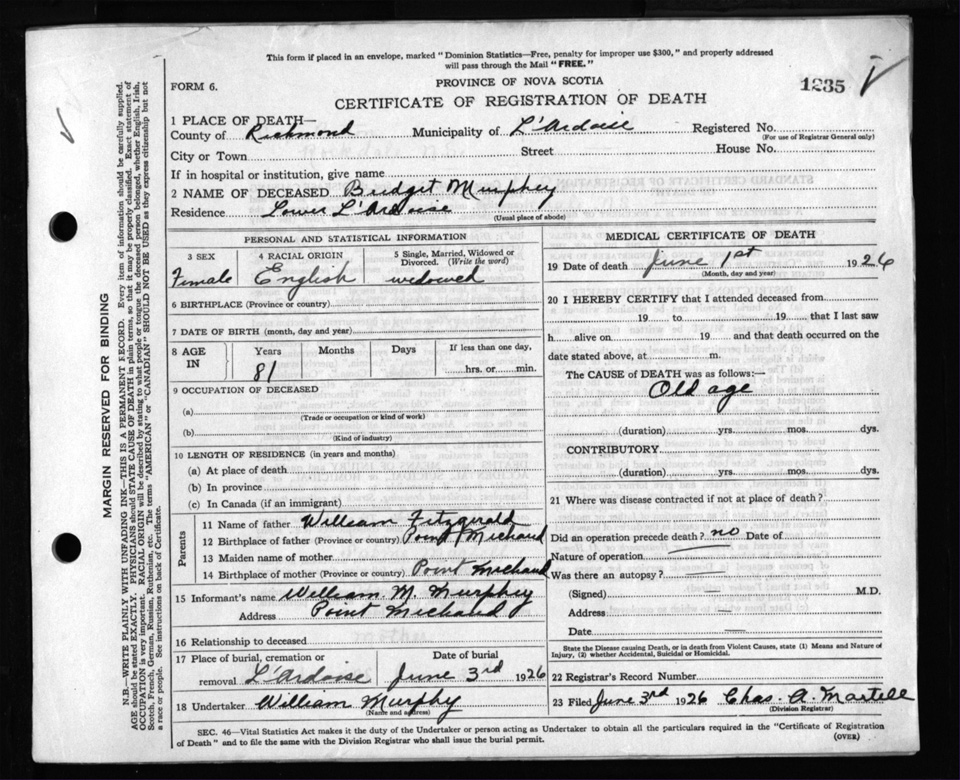 This form if placed in an envelope, marked "Dominion Statistics—Free, penalty for improper use $300," and properly addressed
will pass through the Mail "FREE."
FORM 6.
PROVINCE OF NOVA SCOTIA
1235
CERTIFICATE OF REGISTRATION OF DEATH
1 PLACE OF DEATH—
County of Richmond Municipality of L'Ardoise Registered No.
(For use of Registrar General only)
City or Town Street House No.
If in hospital or institution, give name
2 NAME OF DECEASED Bridget Murphey
Residence Lower L'Ardoise
(Usual place of abode)
PERSONAL AND STATISTICAL INFORMATION
3 SEX 4 RACIAL ORIGIN 5 Single, Married, Widowed or
Divorced. (Write the word)
Female English widowed
6 BIRTHPLACE (Province or country)
7 DATE OF BIRTH (month, day and year)
8 AGE IN Years Months Days If less than one day,
81 hrs. or min.
9 OCCUPATION OF DECEASED
(a)
(Trade or occupation or kind of work)
(b)
(Kind of industry)
10 LENGTH OF RESIDENCE (in years and months)
(a) At place of death
(b) In province
(c) In Canada (if an immigrant)
Parents
11 Name of father William Fitzgerald
12 Birthplace of father (Province or country) Point Michaud
13 Maiden name of mother
14 Birthplace of mother (Province or country) Point Michaud
15 Informant's name William M. Murphey
Address Point Michaud
16 Relationship to deceased
17 Place of burial, cremation or Date of burial
removal L'Ardoise June 3rd 1926
18 Undertaker William Murphy
(Name and address)
MEDICAL CERTIFICATE OF DEATH
19 Date of death June 1st 1926
(Month, day and year)
20 I HEREBY CERTIFY that I attended deceased from
19 to 19 that I last saw
h alive on 19 and that death occurred on the
date stated above, at m.
The CAUSE of DEATH was as follows:—
Old age
(duration) yrs. mos. dys.
CONTRIBUTORY
(duration) yrs. mos. dys.
21 Where was disease contracted if not at place of death?
Did an operation precede death? no Date of
Nature of operation
Was there an autopsy? —
(Signed) — M.D.
Address —
Date —
State the Disease causing Death, or in death from Violent Causes, state (1) Means and Nature of
Injury, (2) whether Accidental, Suicidal or Homicidal.
22 Registrar's Record Number
23 Filed June 3rd 1926 Chas. A. Martell
(Division Registrar)
SEC. 46—Vital Statistics Act makes it the duty of the Undertaker or person acting as Undertaker to obtain all the particulars required in the "Certificate of Registration
of Death" and to file the same with the Division Registrar who shall issue the burial permit.
(OVER)
MARGIN RESERVED FOR BINDING
N.B.—WRITE PLAINLY WITH UNFADING INK—THIS IS A PERMANENT RECORD. Every item of information should be carefully supplied.
AGE should be stated EXACTLY. PHYSICIANS should STATE CAUSE OF DEATH in plain terms, so that it may be properly classified. Exact statement of
OCCUPATION is very important. RACIAL ORIGIN will be described by stating to what people or tongue the deceased person belonged, whether English, Irish,
Scotch, French, German, Russian, Ruthenian, etc. The terms "AMERICAN" or "CANADIAN" SHOULD NOT BE USED as they express citizenship but not
a race or people. See instructions on back of Certificate.